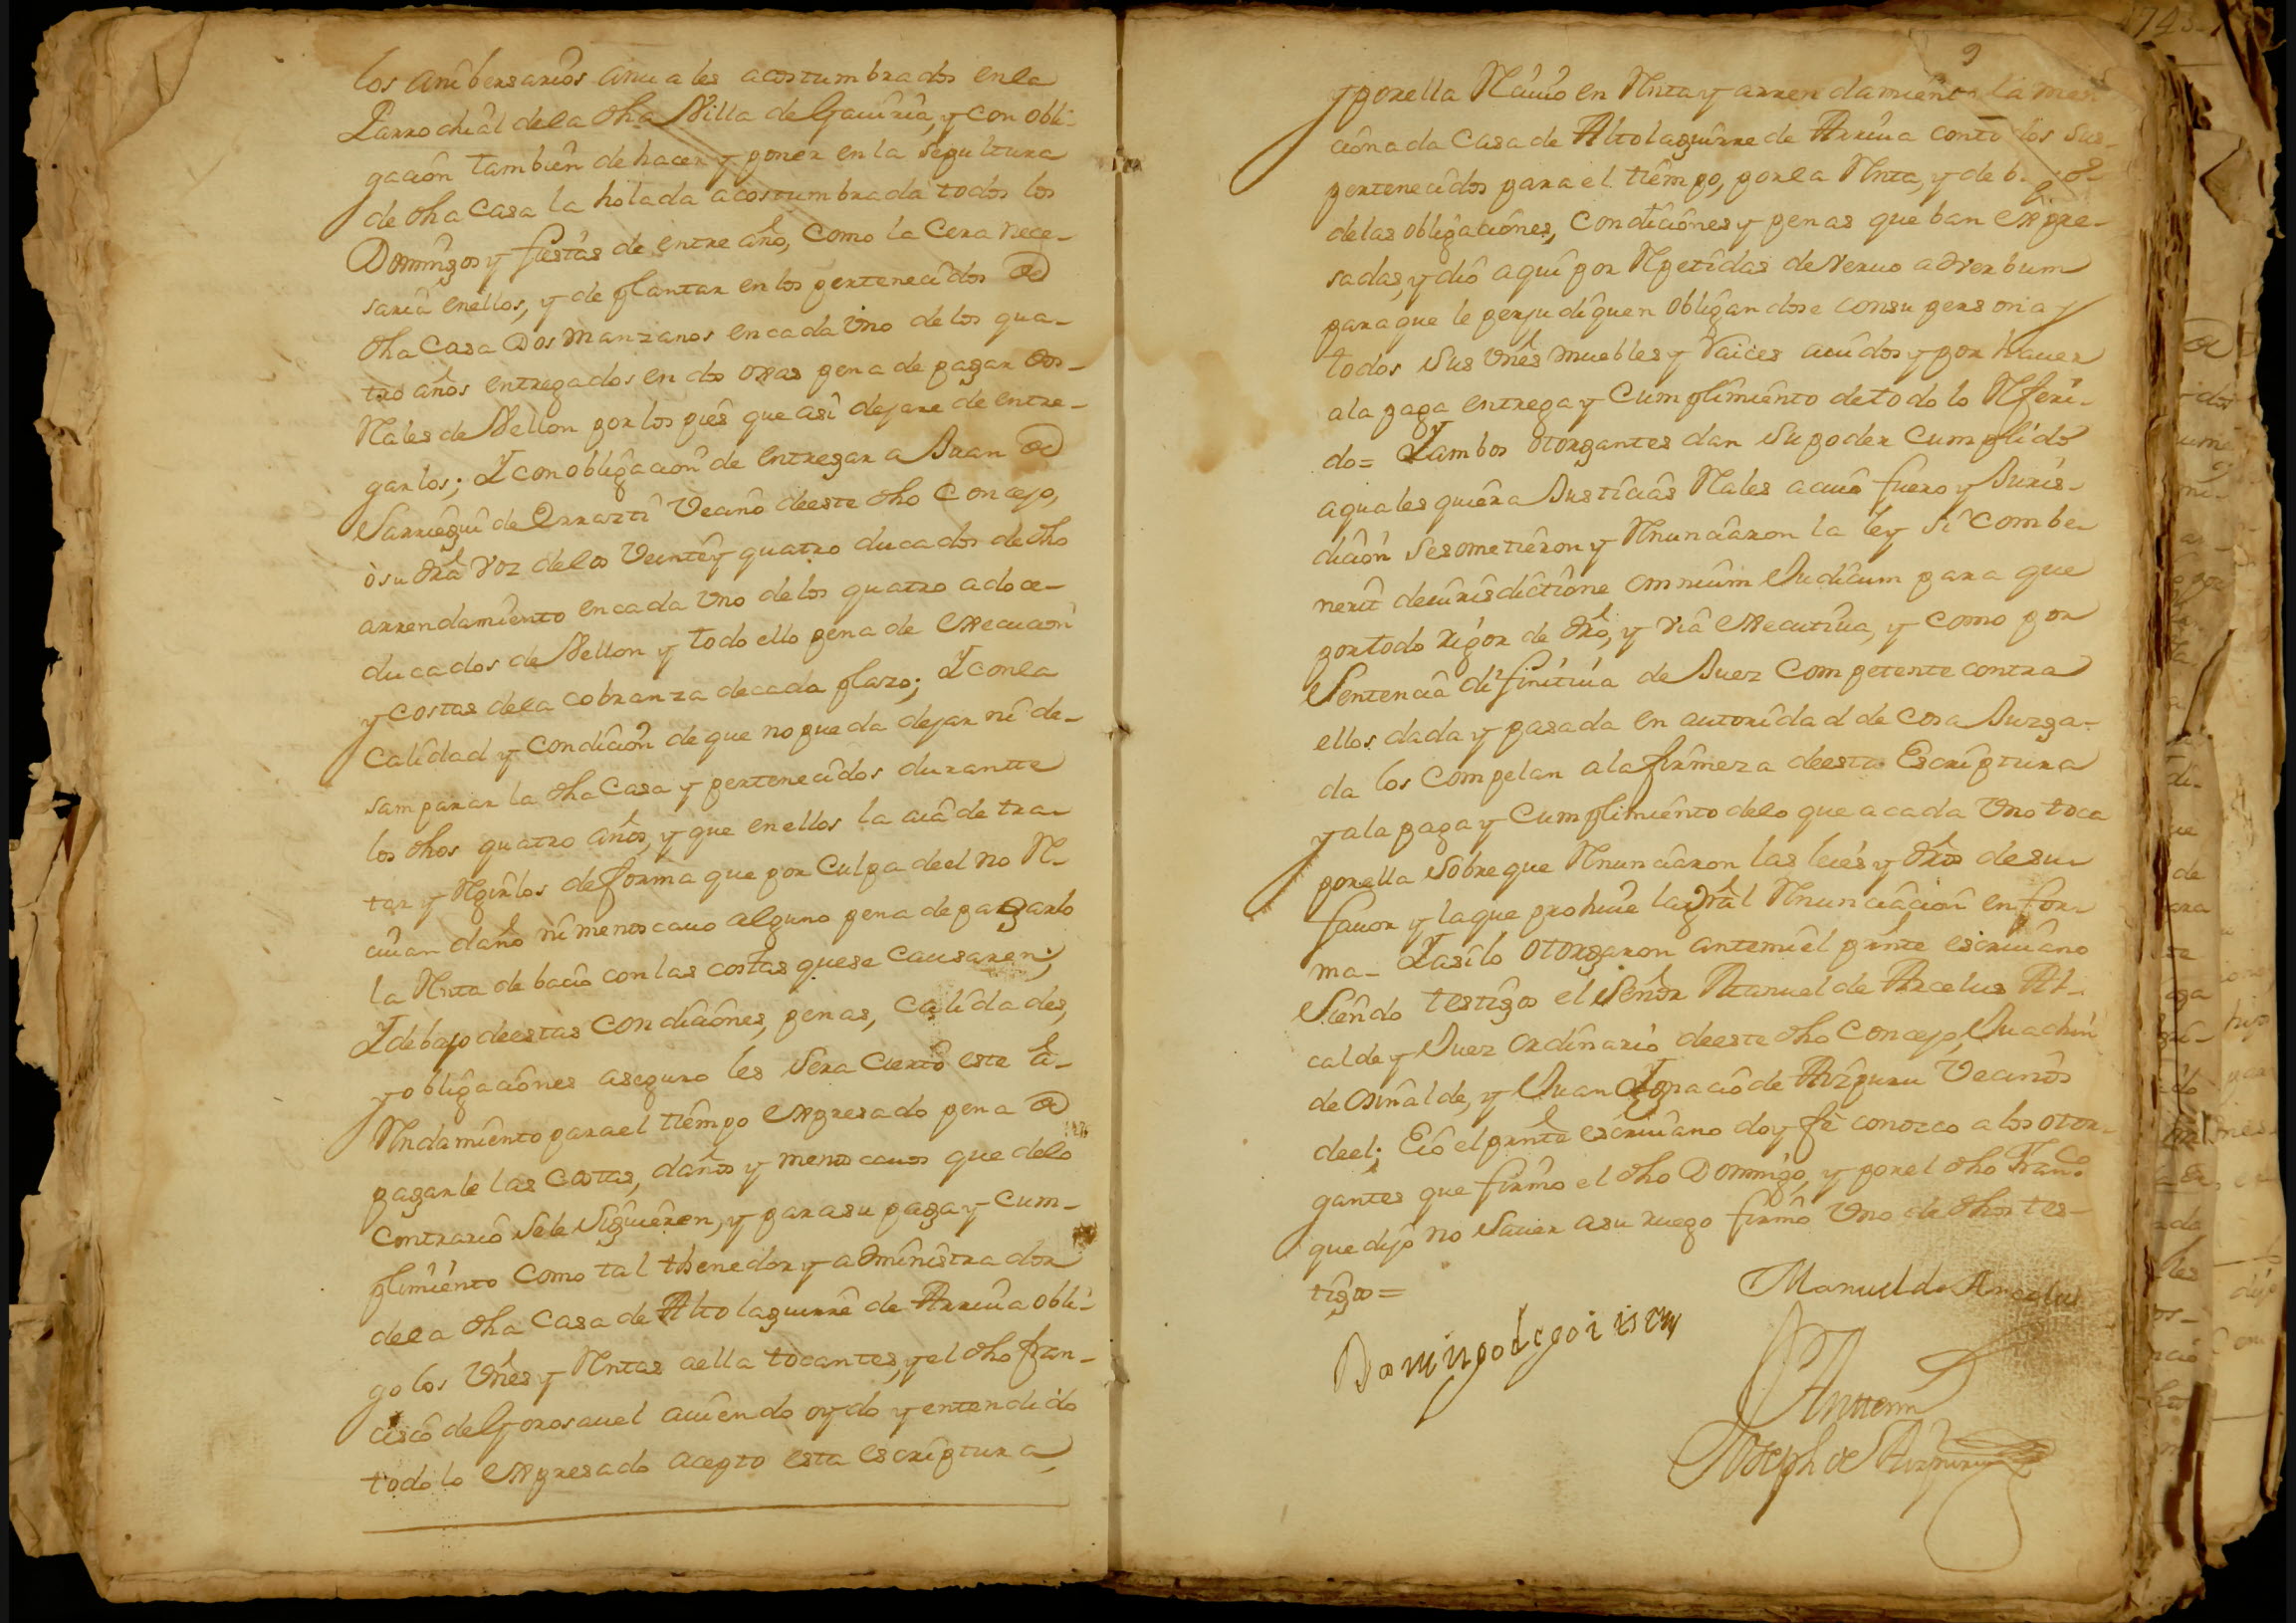 los anibersarios anuales acostumbrados en la
Parrochial de la dha Villa de Gaviria, y con obli-
gacion tambien de hacer y poner en la sepultura
de dha Casa la holada acostumbrada todos los
Domingos y fiestas de entre año, como la Cera nece-
saria en ellos, y de plantar en los pertenecidos de
dha Casa Dos Manzanos en cada Uno de los qua-
tro años entregados en dos oxas pena de pagar dos
Rales de Vellon por los pies que asi dejare de entre-
garlos; Y con obligacion de entregar a Juan de
Sarriegui de Errazti Vecino de este dho Concejo,
ò su dra voz de los Veinte y quatro ducados de dho
arrendamiento en cada Uno de los quatro a doce
ducados de Vellon y todo ello pena de execucion
y costas de la cobranza de cada plazo; Y con la
Calidad y Condicion de que no pueda dejar ni de-
samparar la dha Casa y pertenecidos durantte
los dhos quatro años, y que en ellos la aia de tra-
tar y Regirlos de forma que por Culpa de el no R-
civan daño ni menoscavo alguno pena de pagarlo
la Rnta de bacio con las costas que se Causaren;
Y debajo de estas Condiciones, penas, calidades,
y obligaciones aseguro les Sera Cierto este a-
Rndamiento para el tiempo expresado pena de
pagarle las Costas, daños y menoscavos que de lo
Contrario se le Siguieren, y para su paga y Cum-
plimiento como tal thenedor y administrador
de la dha Casa de Altolaguirre de Arriva obli-
go los Vnes y Rntas a ella tocantes, y el dho fran-
cisco de Gorosavel aviendo oydo y entendido
todo lo expresado acepto esta escriptura,
9
y por ella Rcivio en Rnta y arrendamiento la men-
cionada Casa de Altolaguirre de Arriva con todos sus
pertenecidos para el tiempo, por la Rnta, y de b
de las obligaciones, Condiciones y penas que ban expre-
sadas, y dio aqui por Rpetidas de Vervo ad verbum
para que le perjudiquen obligandose con su persona y
todos sus Vnes muebles y Raices avidos y por haver
a la paga entrega y Cumplimiento de todo lo Rferi-
do= Y ambos otorgantes dan su poder cumplido
a quales quiera Justicias Rales a cuio fuero y Juris-
dicion se sometieron y Rnunciaron la ley Si combe
nerit de iurisdictione omnium Judicum para que
por todo rigor de dro, y via executiva, y como por
Sentencia difinitiva de Juez Competente contra
ellos dada y pasada en autoridad de cosa Juzga-
da los compelan a la firmeza de esta Escriptura
y a la paga y Cumplimiento de lo que a cada Uno toca
por ella Sobre que Rnunciaron las leies y dros de su
favor y la que prohive la gral Rnunciacion en for-
ma- Y asi lo otorgaron ante mi el prnte escrivano
Siendo testigos el Señor Manuel de Arcelus Al-
calde y Juez ordinario de este dho Concejo, Juachin
de Osinalde, y Juan Ignacio de Aizpuru Vecinos
de el; E io el prnte escrivano doy fè conozco a los otor-
gantes que firmo el dho Domingo, y por el dho Franco
que dijo no Saver a su ruego firmò Uno de dhos tes-
tigos=
Manuel de Arcelus
Domingo de goi
Antemi
Joseph de Aizpuru